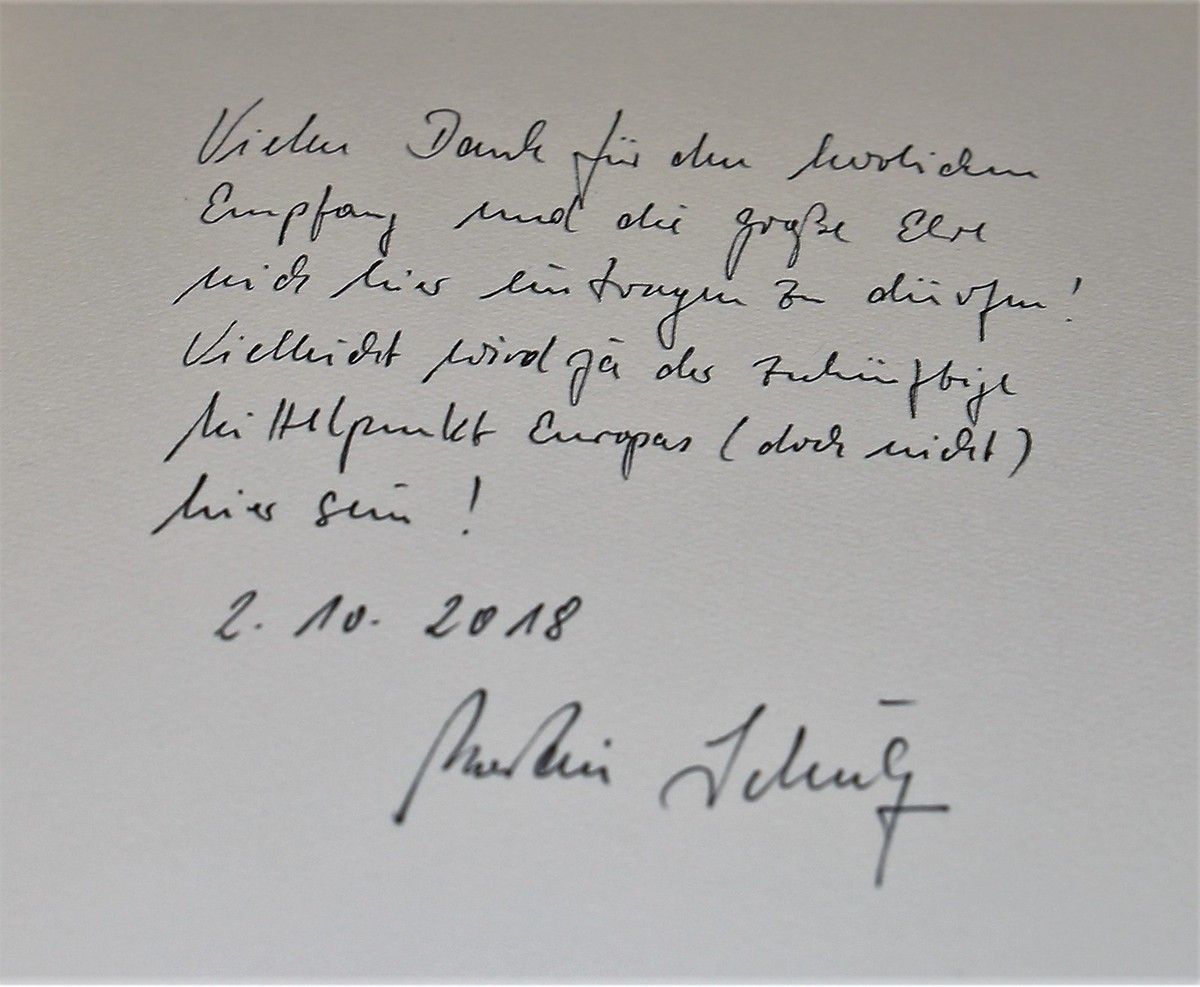 Vielen Dank für den herzlichen
Empfang und die große Ehre
mich hier eintragen zu dürfen!
Vielleicht wird ja der zukünftige
Mittelpunkt Europas (doch nicht)
hier sein!
2. 10. 2018
Martin Schulz